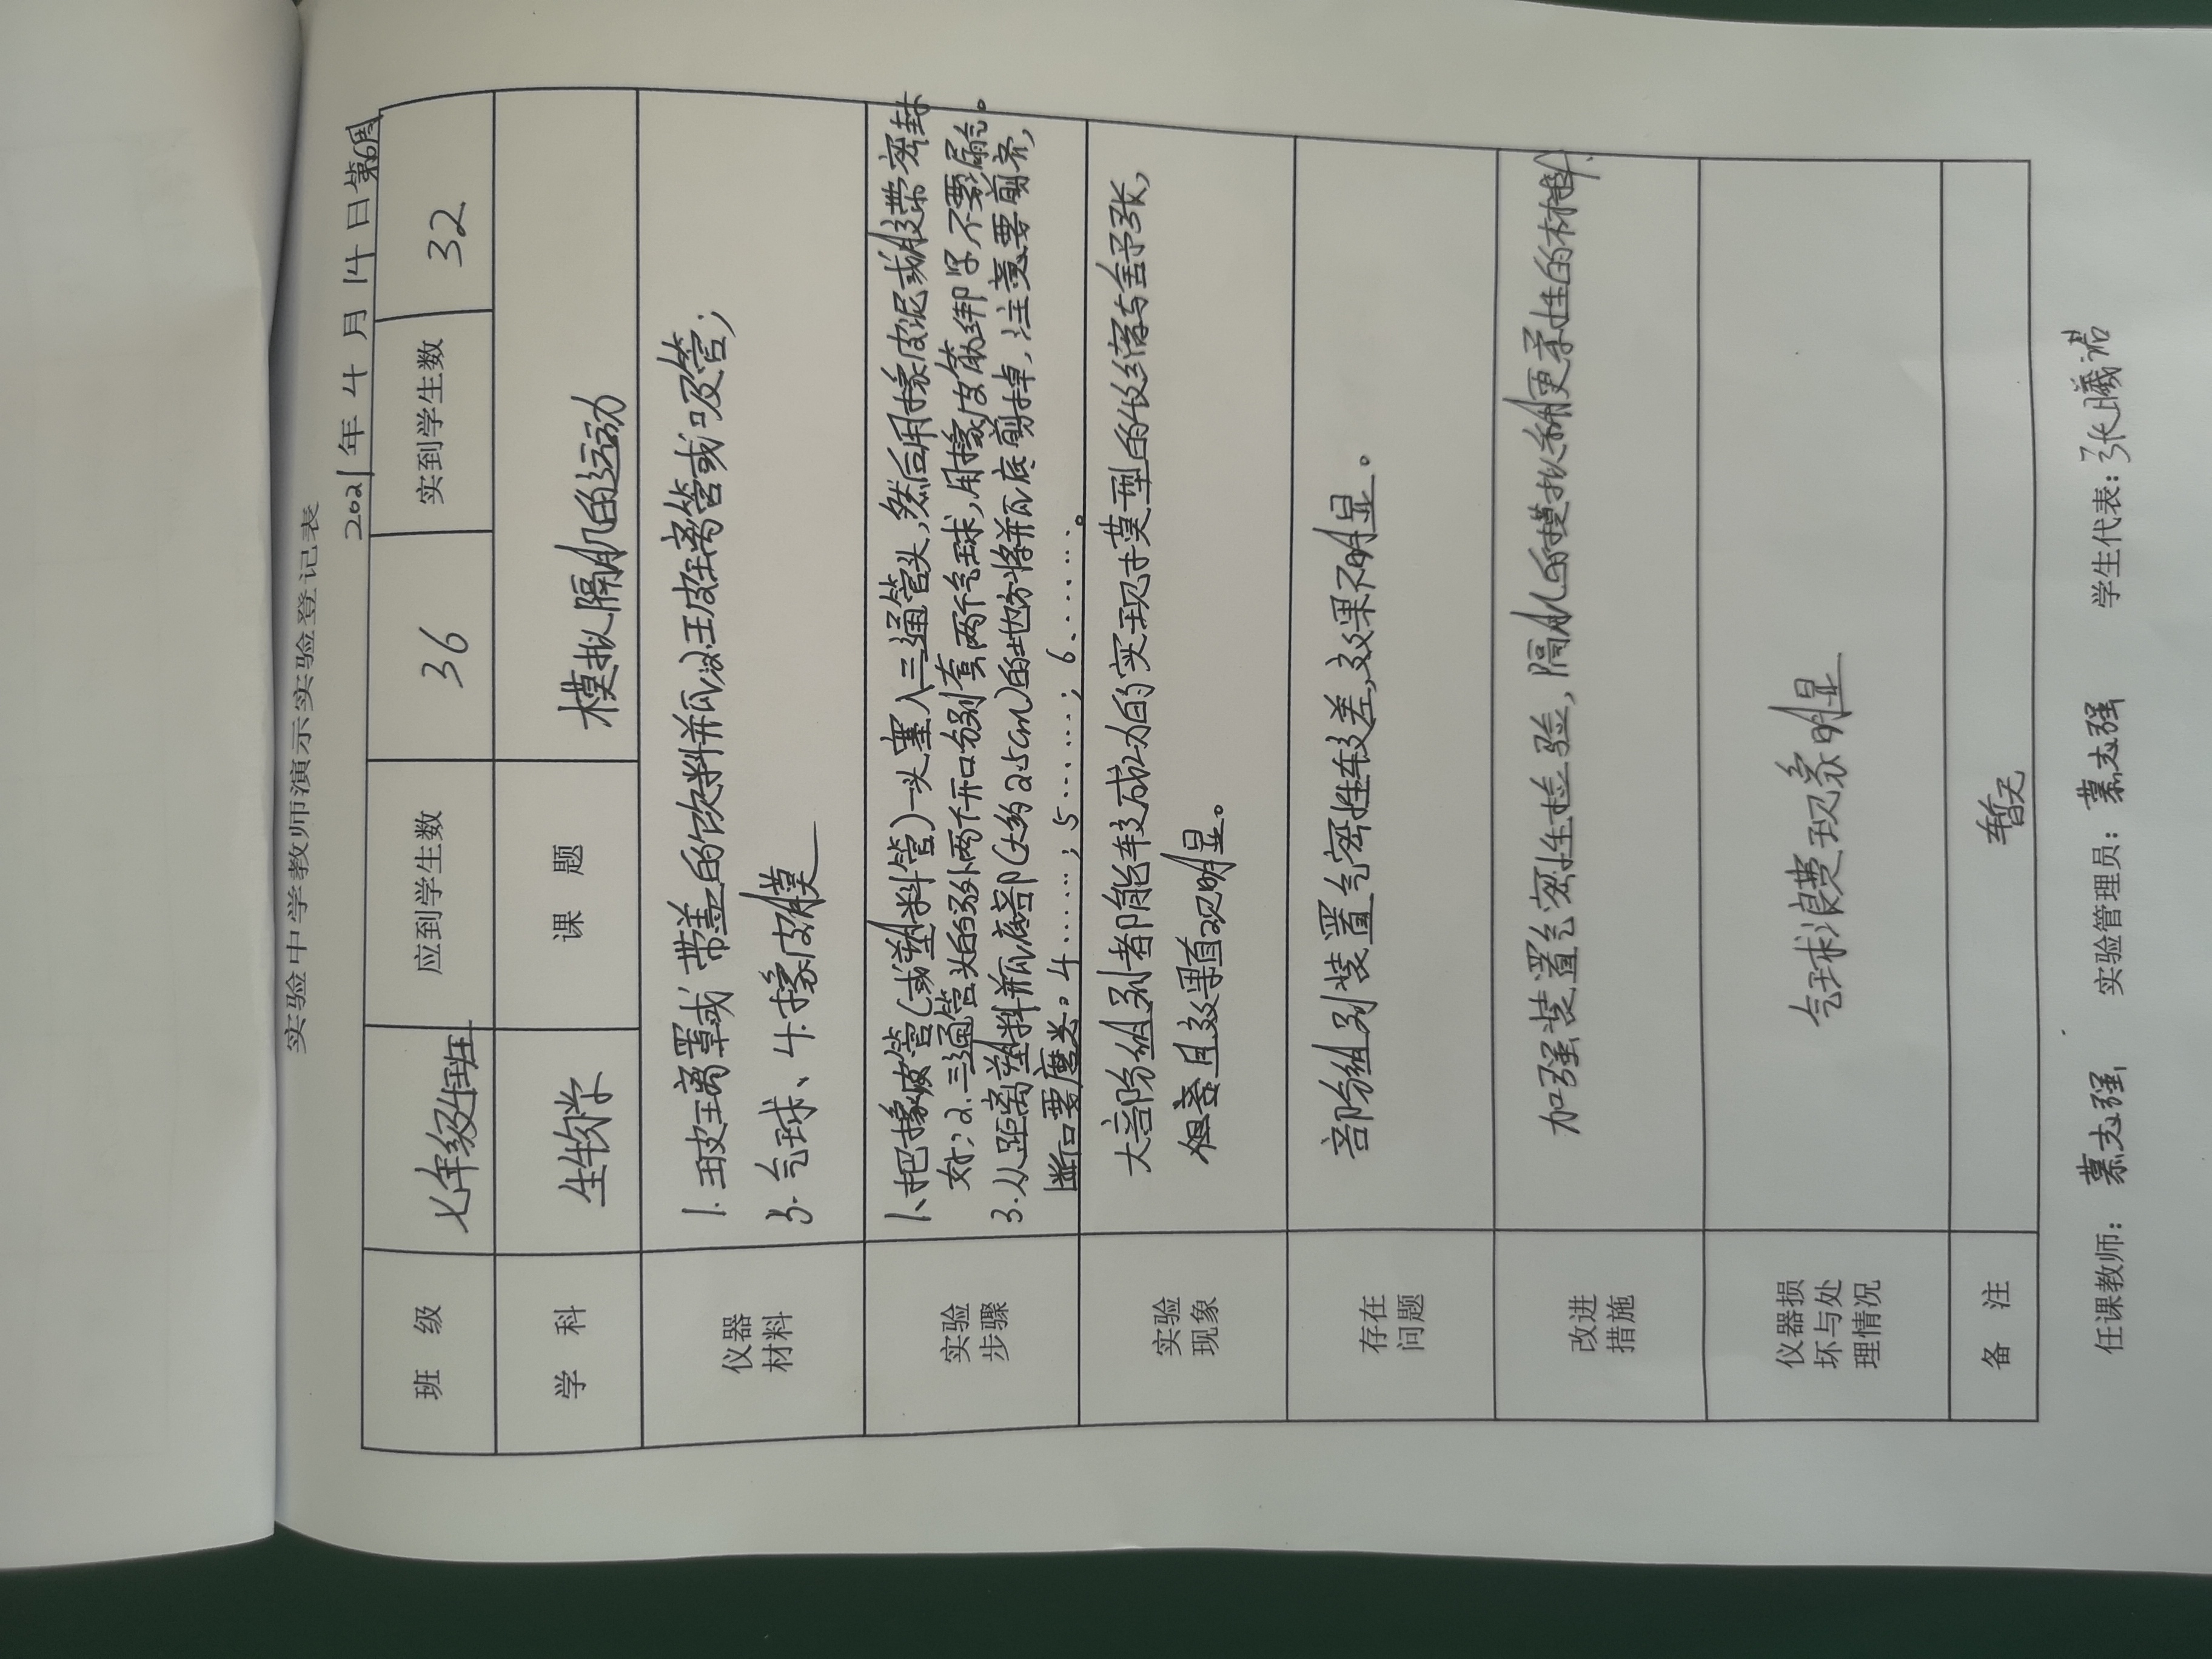 实验中学教师演示实验登记表
2021年 4 月 14 日 第6周
班 级 七年级 班 应到学生数 36 实到学生数 32
学 科 生物学 课 题 模拟膈肌的运动
仪器材料
1. 玻璃罩或带盖的饮料瓶 2. 玻璃管或吸管；
3. 气球、4. 橡皮膜
实验步骤
1、把橡皮管(或塑料管)一头塞入三通管头，然后用橡皮泥或胶带密封
好；2.三通管头的另外两个开口分别套两个气球，用橡皮筋绑牢，不要漏气。
3.从距离塑料瓶底部(大约2.5cm)的地方将瓶底剪掉，注意要剪齐，
断口要磨光。4……；5……；6……。
实验现象
大部分组别都能较成功的实现对模型的收缩与舒张，
且效果直观明显。
存在问题
部分组别装置气密性较差，效果不明显。
改进措施
加强装置气密性检验，膈肌的模拟称用更柔性的材料
仪器损坏与处理情况
气球浪费现象明显
备 注 暂无
任课教师： 慕志强 实验管理员：慕志强 学生代表：张曦